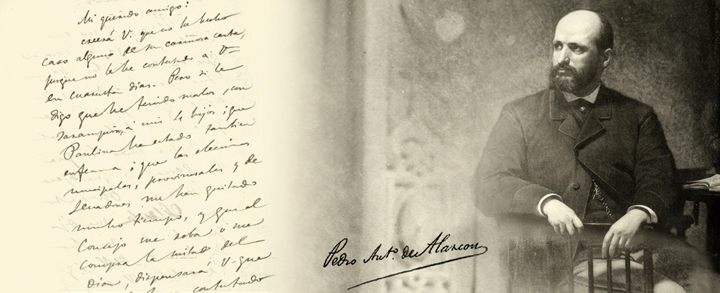 Mi querido amigo:
creerá V. que no he hecho
caso alguno de su cariñosa carta,
porque no le he contestado a V.
en cuarenta dias. Pero si le
digo que he tenido malos, con
sarampion, á mis 4 hijos; que
Paulina ha estado tambien
enferma; que las elecciones
municipales, provinciales y de
Senadores me han quitado
mucho tiempo, y que el
Consejo me roba ó me
compra la mitad del
dia, dispensará V. que
contestado
Pedro Ant.º de Alarcon